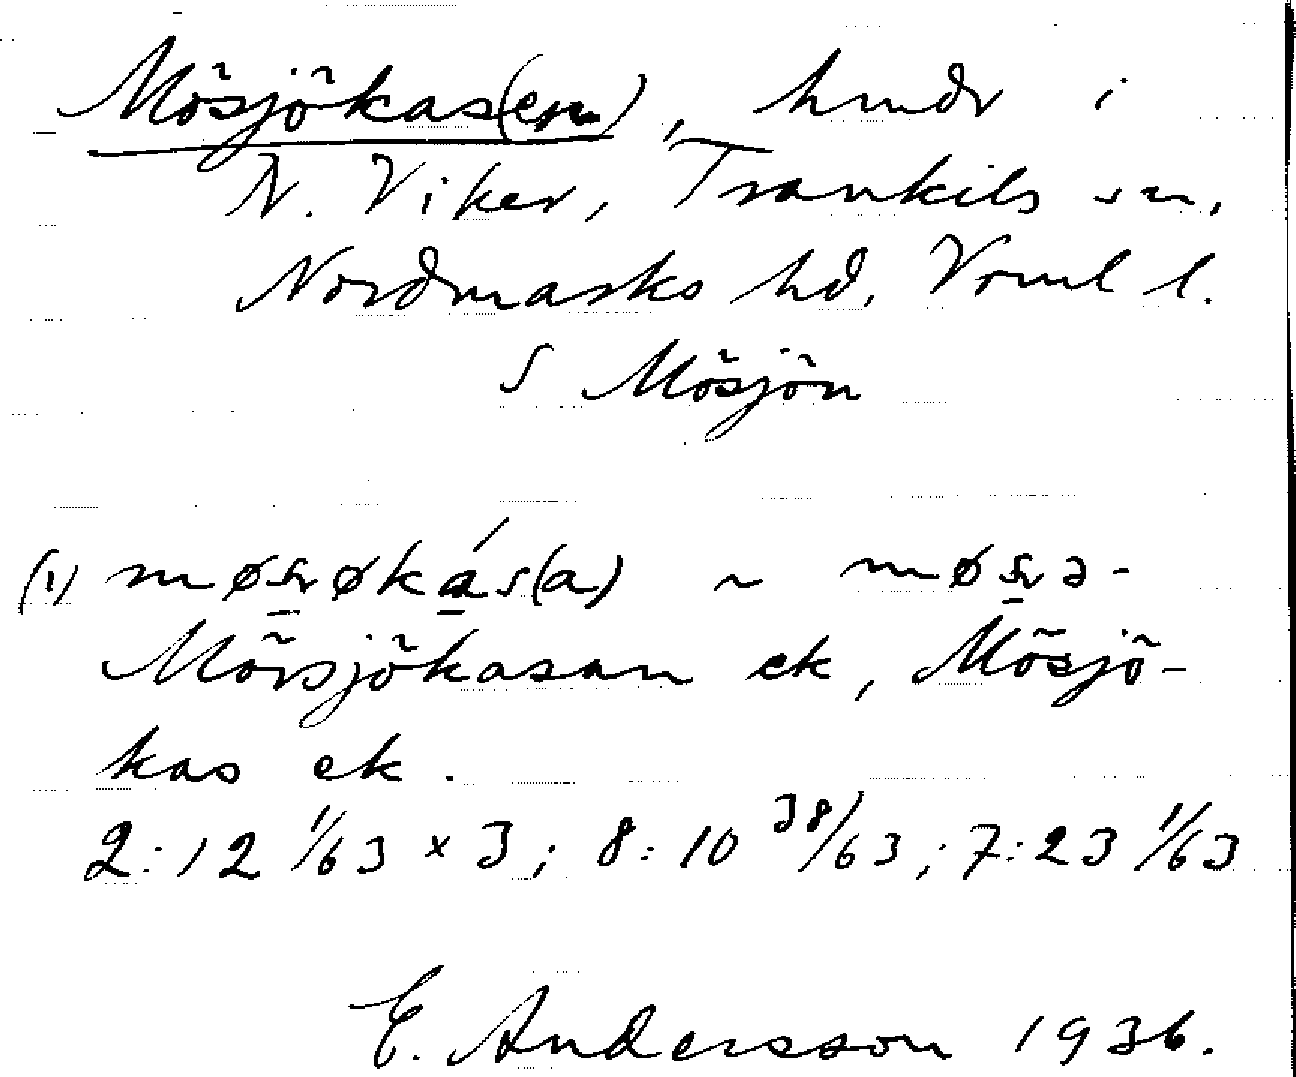 Mösjökas(en), hmdr i
N. Viker, Trankils sn,
Nordmarks hd, Vrml l.
S Mösjön
(1) møsøkás(a) ~ møsə-
Mörsjökasan ek, Mösjö-
kas ek.
2:12 1/63 x 3; 8:10 38/63; 7:23 1/63
E. Andersson 1936.